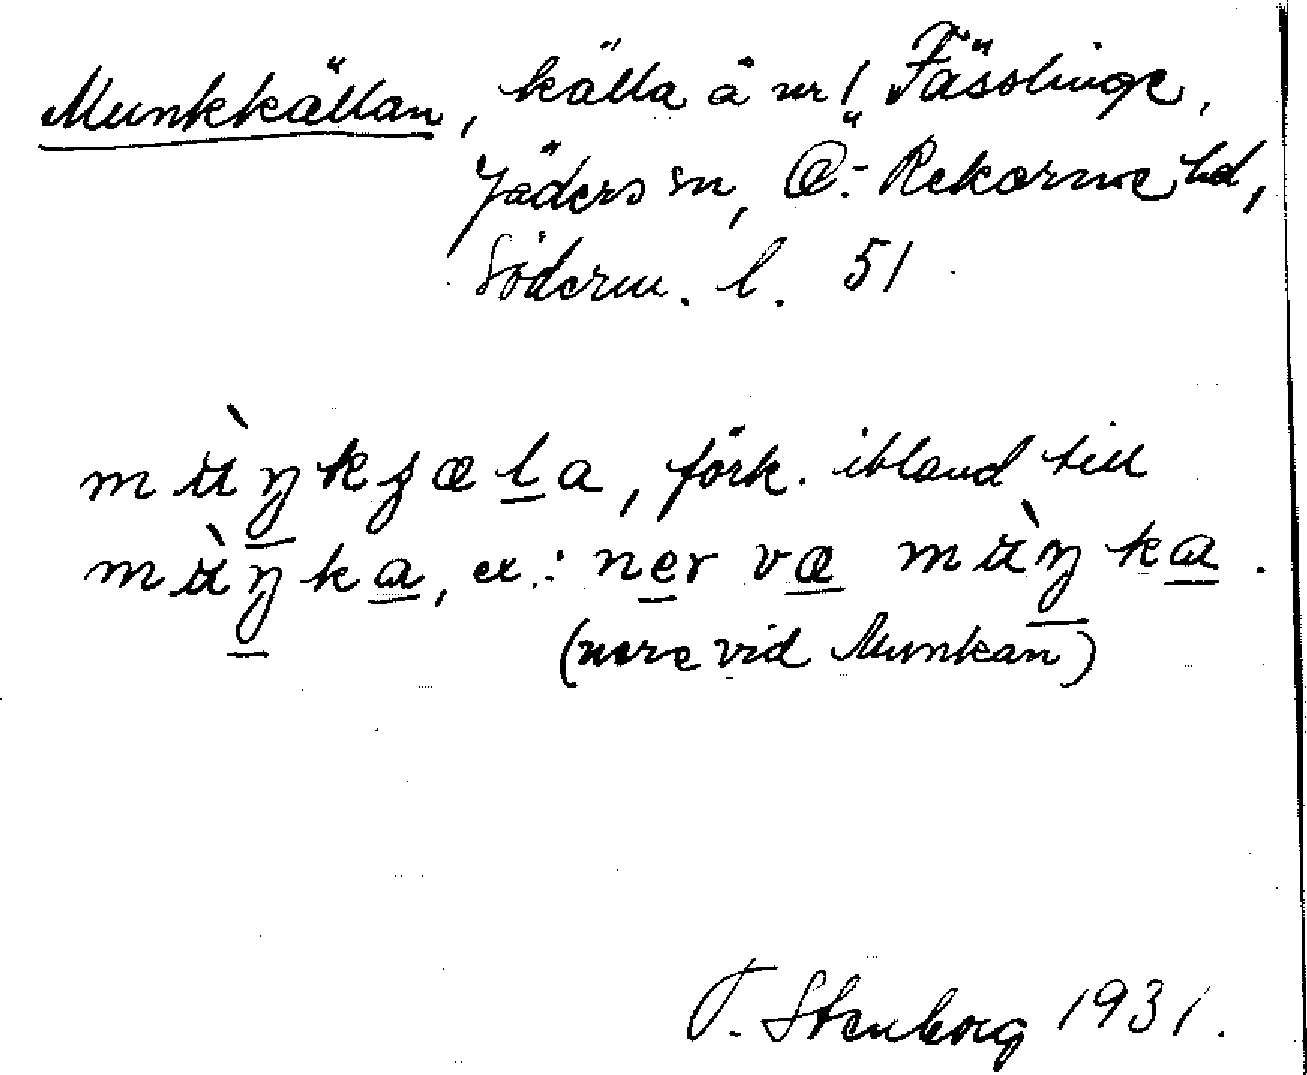 Munkkällan, källa å nr 1 Fässlinge,
Jäders sn, Ö:- Rekarne hd,
Söderm. l. 51
mùŋkɟæla, förk. ibland till
mùŋka, ex.: ner væ mùŋka.
(nere vid Munkan)
T. Stenborg 1931.